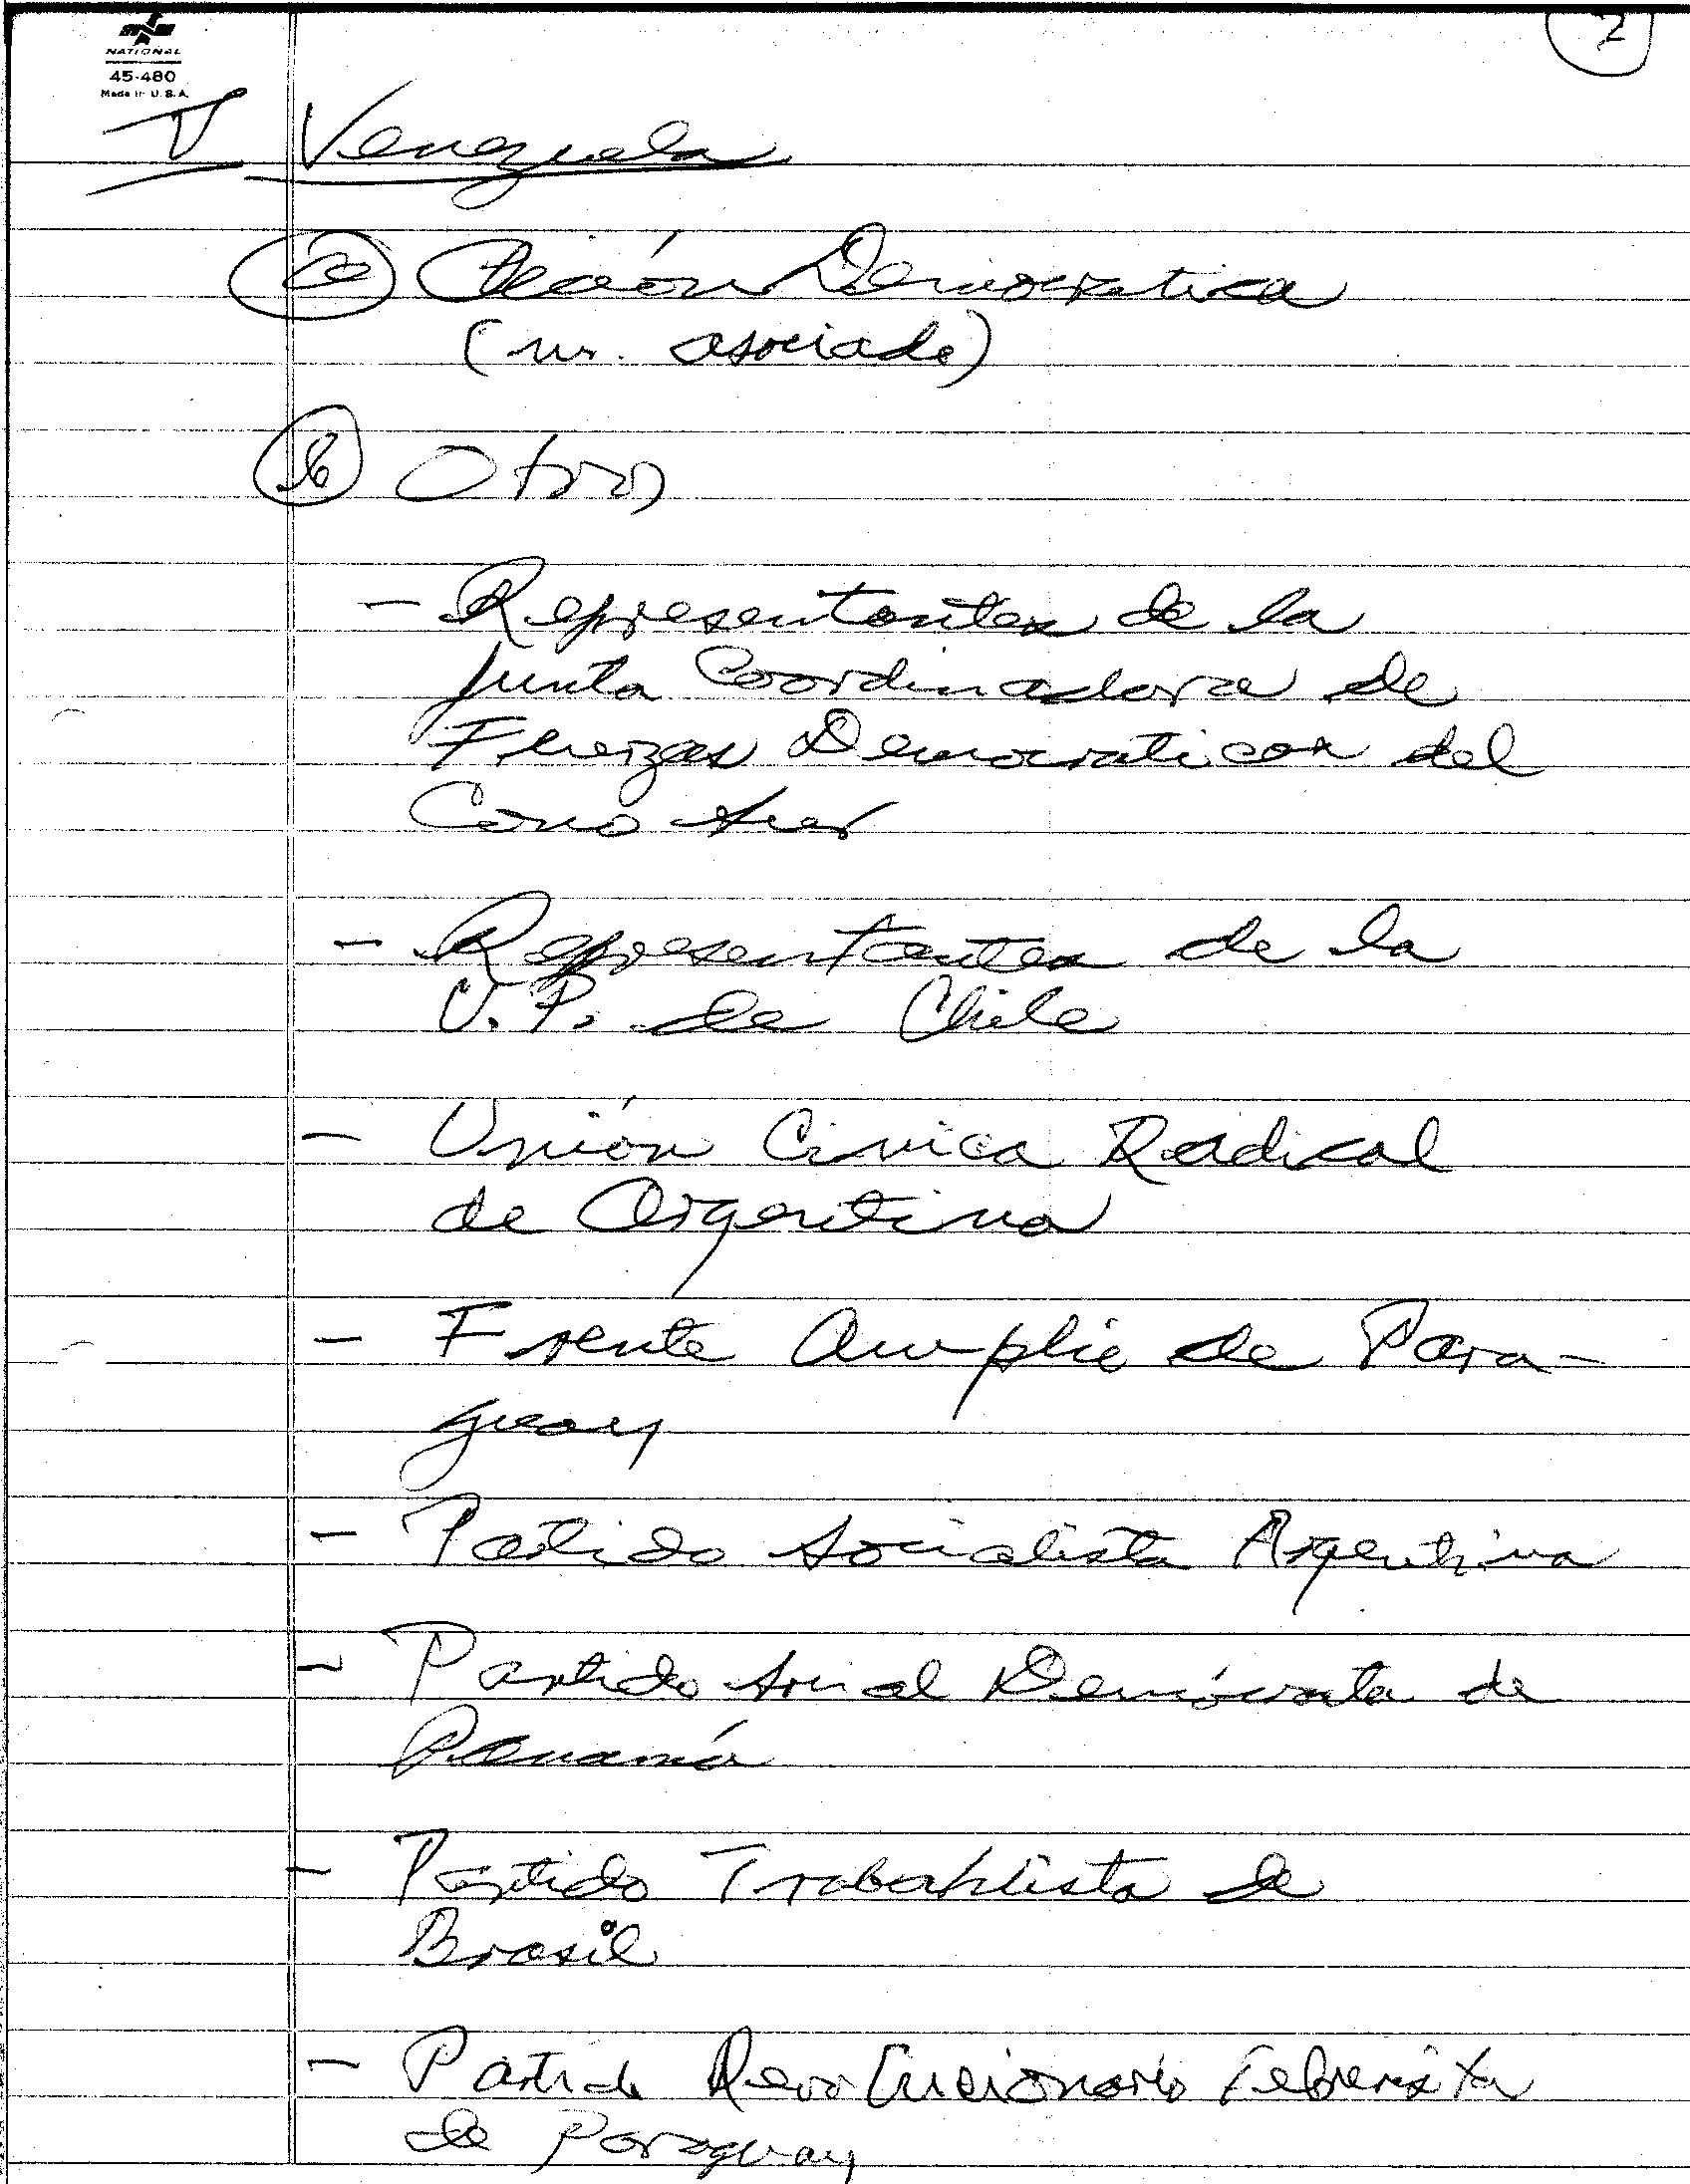 2
NATIONAL
45-480
Made in U.S.A.
V Venezuela
a Acción Democratica
(m. asociado)
b Otros
- Representantes de la
Junta Coordinadora de
Fuerzas Democraticas del
Cono Sur
- Representantes de la
U.P. de Chile
- Unión Civica Radical
de Argentina
- Frente Amplio de Para-
guay
- Partido Socialista Argentina
- Partido Social Demócrata de
Panamá
- Partido Trabahlista de
Brasil
- Partido Revolucionario Febrerista
de Paraguay